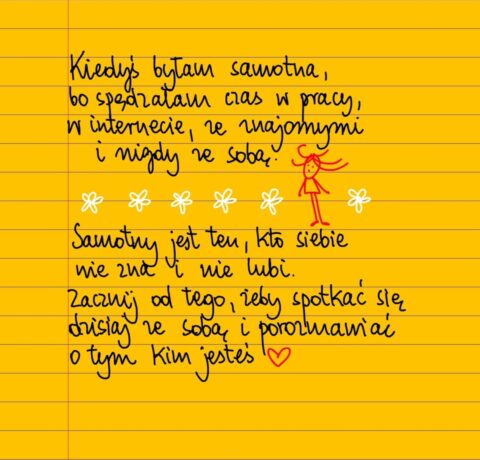 Kiedyś byłam samotna,
bo spędzałam czas w pracy,
w internecie, ze znajomymi
i nigdy ze sobą.
Samotny jest ten, kto siebie
nie zna i nie lubi.
Zacznij od tego, żeby spotkać się
dzisiaj ze sobą i porozmawiać
o tym kim jesteś